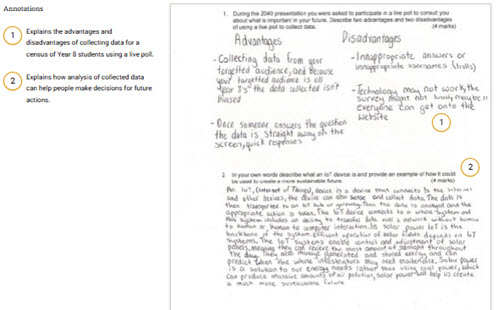 Annotations
1
Explains the advantages and
disadvantages of collecting data for a
census of Year 8 students using a live poll.
2
Explains how analysis of collected data
can help people make decisions for future
actions.
1. During the 2040 presentation you were asked to participate in a live poll to consult you
about what is important in your future. Describe two advantages and two disadvantages
of using a live poll to collect data. (4 marks)
Advantages
- Collecting data from your
targetted audience, and because
your targetted audience is all
year 8's the data collected isn't
biased
- Once someone answers the question
the data is straight away on the
screen, quick responses
Disadvantages
- Innappropriate answers or
innappropriate usernames (trolls)
- Technology may not work, the
survey might not load, maybe n
everyone can get onto the
website
1
2
2. In your own words describe what an IoT device is and provide an example of how it could
be used to create a more sustainable future. (4 marks)
An IoT, (Internet of Things), device is a device that connects to the internet
and other devices, the device can also sense and collect data. The data is
then transported to an IoT hub or gateway. Then the data is analysed and the
appropriate action is taken. The IoT device connects to a whole system and
this system includes an ability to transfer data over a network without human
to human or human to computer interaction. In solar power IoT is the
backbone of the system, efficient operation of solar fields depends on IoT
systems. The IoT systems enable control and adjustment of solar
panels, meaning they can receive the most amount of sunlight throughout
the day. They also manage generated and stored energy and can
predict when the whole infrastructure may need maintenance. Solar power
is a solution to our energy needs rather than using coal power, which
can produce massive amounts of air pollution, solar power will help us create
a much more sustainable future.